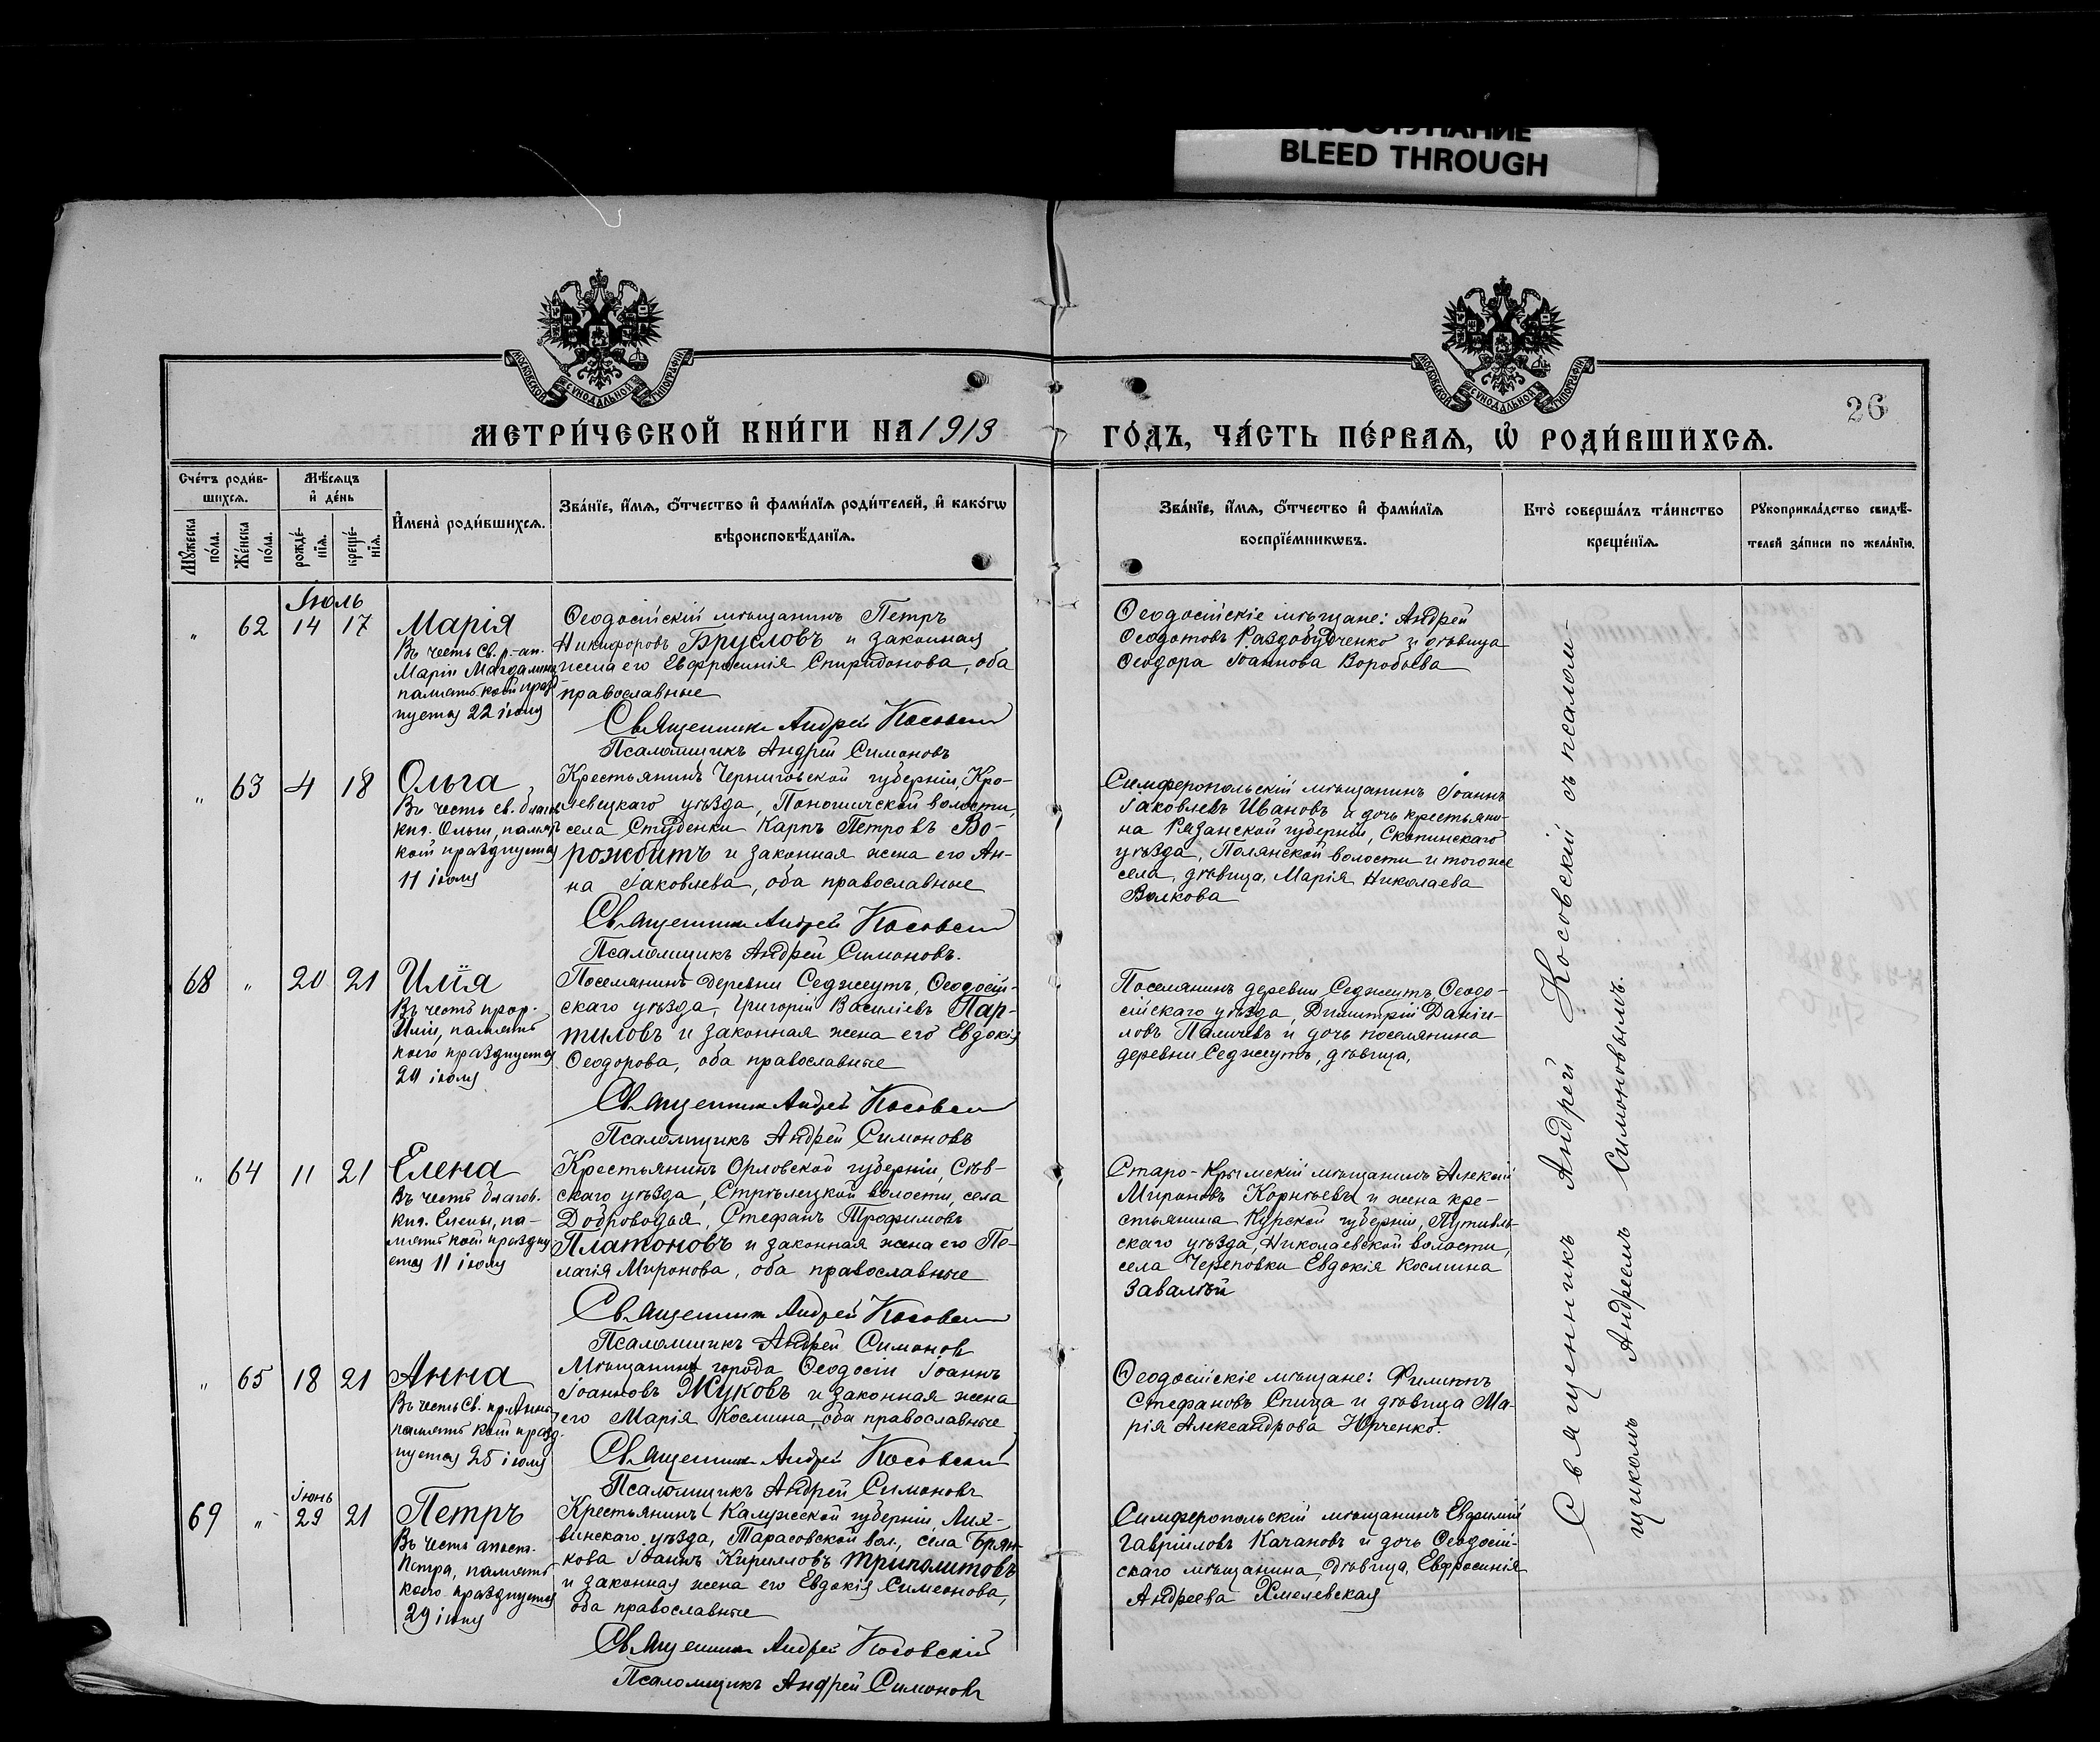 ПРОСТУПАНИЕ
BLEED THROUGH
МОСКОВСКОЙ СѴНОДАЛЬНОЙ ТИПОГРАФІИ
МОСКОВСКОЙ СѴНОДАЛЬНОЙ ТИПОГРАФІИ
26
МЕТРИ́ЧЕСКОЙ КНИ́ГИ НА 1913 ГО́ДЪ, ЧА́СТЬ ПЕ́РВАѦ, Ѡ҆ РОДИ́ВШИХСѦ.
Сче́тъ роди́в-
шихсѧ.
Мѣ́сѧцъ
и҆ де́нь
Мꙋ́жеска по́ла.
Же́нска по́ла.
рожде́-
нїѧ.
креще́-
нїѧ.
И҆мена̀ роди́вшихсѧ.
Зва́нїе, и҆́мѧ, ѻ҆́тчество и҆ фами́лїѧ роди́телей, и҆ како́гѡ
вѣроисповѣ́данїѧ.
Зва́нїе, и҆́мѧ, ѻ҆́тчество и҆ фами́лїѧ
воспрїе́мникѡвъ.
Кто̀ соверша́лъ та́инство
креще́нїѧ.
Рꙋкоприкла́дство свидѣ́-
телей за́писи по жела́нїю.
Іюль
" 62 14 17 Марія
Въ честь Св. р.-ап.
Маріи Магдалины
память коей празд-
нуется 22 іюля
Ѳеодосійскій мѣщанинъ Петръ
Никифоровъ Брусловъ и законная
жена его Евфросинія Спиридонова, оба
православные
Священникъ Андрей Косовскій
Псаломщикъ Андрей Симоновъ
Ѳеодосійскіе мѣщане: Андрей
Ѳеодотовъ Раздобудченко и дѣвица
Ѳеодора Іоаннова Воробьева
" 63 4 18 Ольга
Въ честь св. благов.
кн. Ольги, память
коей празднуется
11 іюля
Крестьянинъ Черниговской губерніи, Кро-
левецкаго уѣзда, волости,
села Студенки Карпъ Петровъ Во-
рожбитъ и законная жена его Ан-
на Іаковлева, оба православные
Священникъ Андрей Косовскій
Псаломщикъ Андрей Симоновъ.
Симферопольскій мѣщанинъ Іоаннъ
Іаковлевъ Ивановъ и дочь крестьяни-
на Рязанской губерніи, Скопинскаго
уѣзда, Полянской волости и того же
села, дѣвица, Марія Николаева
Волкова
68 " 20 21 Илія
Въ честь прор.
Иліи, память
коего празднуется
20 іюля
Поселянинъ деревниСеджеутъ, Ѳеодосій-
скаго уѣзда, Григорій Василіевъ Пар-
тиловъ и законная жена его Евдокія
Ѳеодорова, оба православные
Священникъ Андрей Косовскій
Псаломщикъ Андрей Симоновъ
Поселянинъ деревни Седжеутъ, Ѳеодо-
сійскаго уѣзда, Димитрій Даніи-
ловъ Паличевъ и дочь поселянина
деревни Седжеутъ, дѣвица,
" 64 11 21 Елена
Въ честь благов.
кн. Елены, па-
мять коей праздну
ется 11 іюля
Крестьянинъ Орловской губерніи, Сѣв-
скаго уѣзда, Стрѣлецкой волости, села
Доброводья, Стефанъ Трофимовъ
Платоновъ и законная жена его Пе-
лагія Миронова, оба православные
Священникъ Андрей Косовскій
Псаломщикъ Андрей Симонов
Старо-Крымскій мѣщанинъ Алексій
Мироновъ Корнѣевъ и жена кре-
стьянина Курской губерніи, Путивль-
скаго уѣзда, Николаевской волости,
села Череповки Евдокія Космина
Завалѣй
" 65 18 21 Анна
Въ честь Св. пр. Анны
память коей празд-
нуется 25 іюля
Мѣщанинъ города Ѳеодосіи Іоаннъ
Іоанновъ Жуковъ и законная жена
его Марія Космина, оба православные
Священникъ Андрей Косовскій
Псаломщикъ Андрей Симоновъ
Ѳеодосійскіе мѣщане: Филиппъ
Стефановъ Спица и дѣвица Ма-
рія Александрова Юрченко.
Іюнь
69 " 29 21 Петръ
Въ честь апост.
Петра, память
коего празднуется
29 іюня
Крестьянинъ Калужской губерніи Лих-
винскаго уѣзда, Тарасовской вол., села Брян-
кова Іоаннъ Кирилловъ Триполитовъ
и законная жена его Евдокія Симеонова,
оба православные
Священникъ Андрей Косовскій
Псаломщикъ Андрей Симоновъ
Симферопольскій мѣщанинъ Евфимій
Гавріиловъ Качановъ и дочь Ѳеодосій-
скаго мѣщанина, дѣвица, Евфросинія
Андреева Хмелевская
Священникъ Андрей Косовскій съ псалом-
щикомъ Андреемъ Симоновымъ.